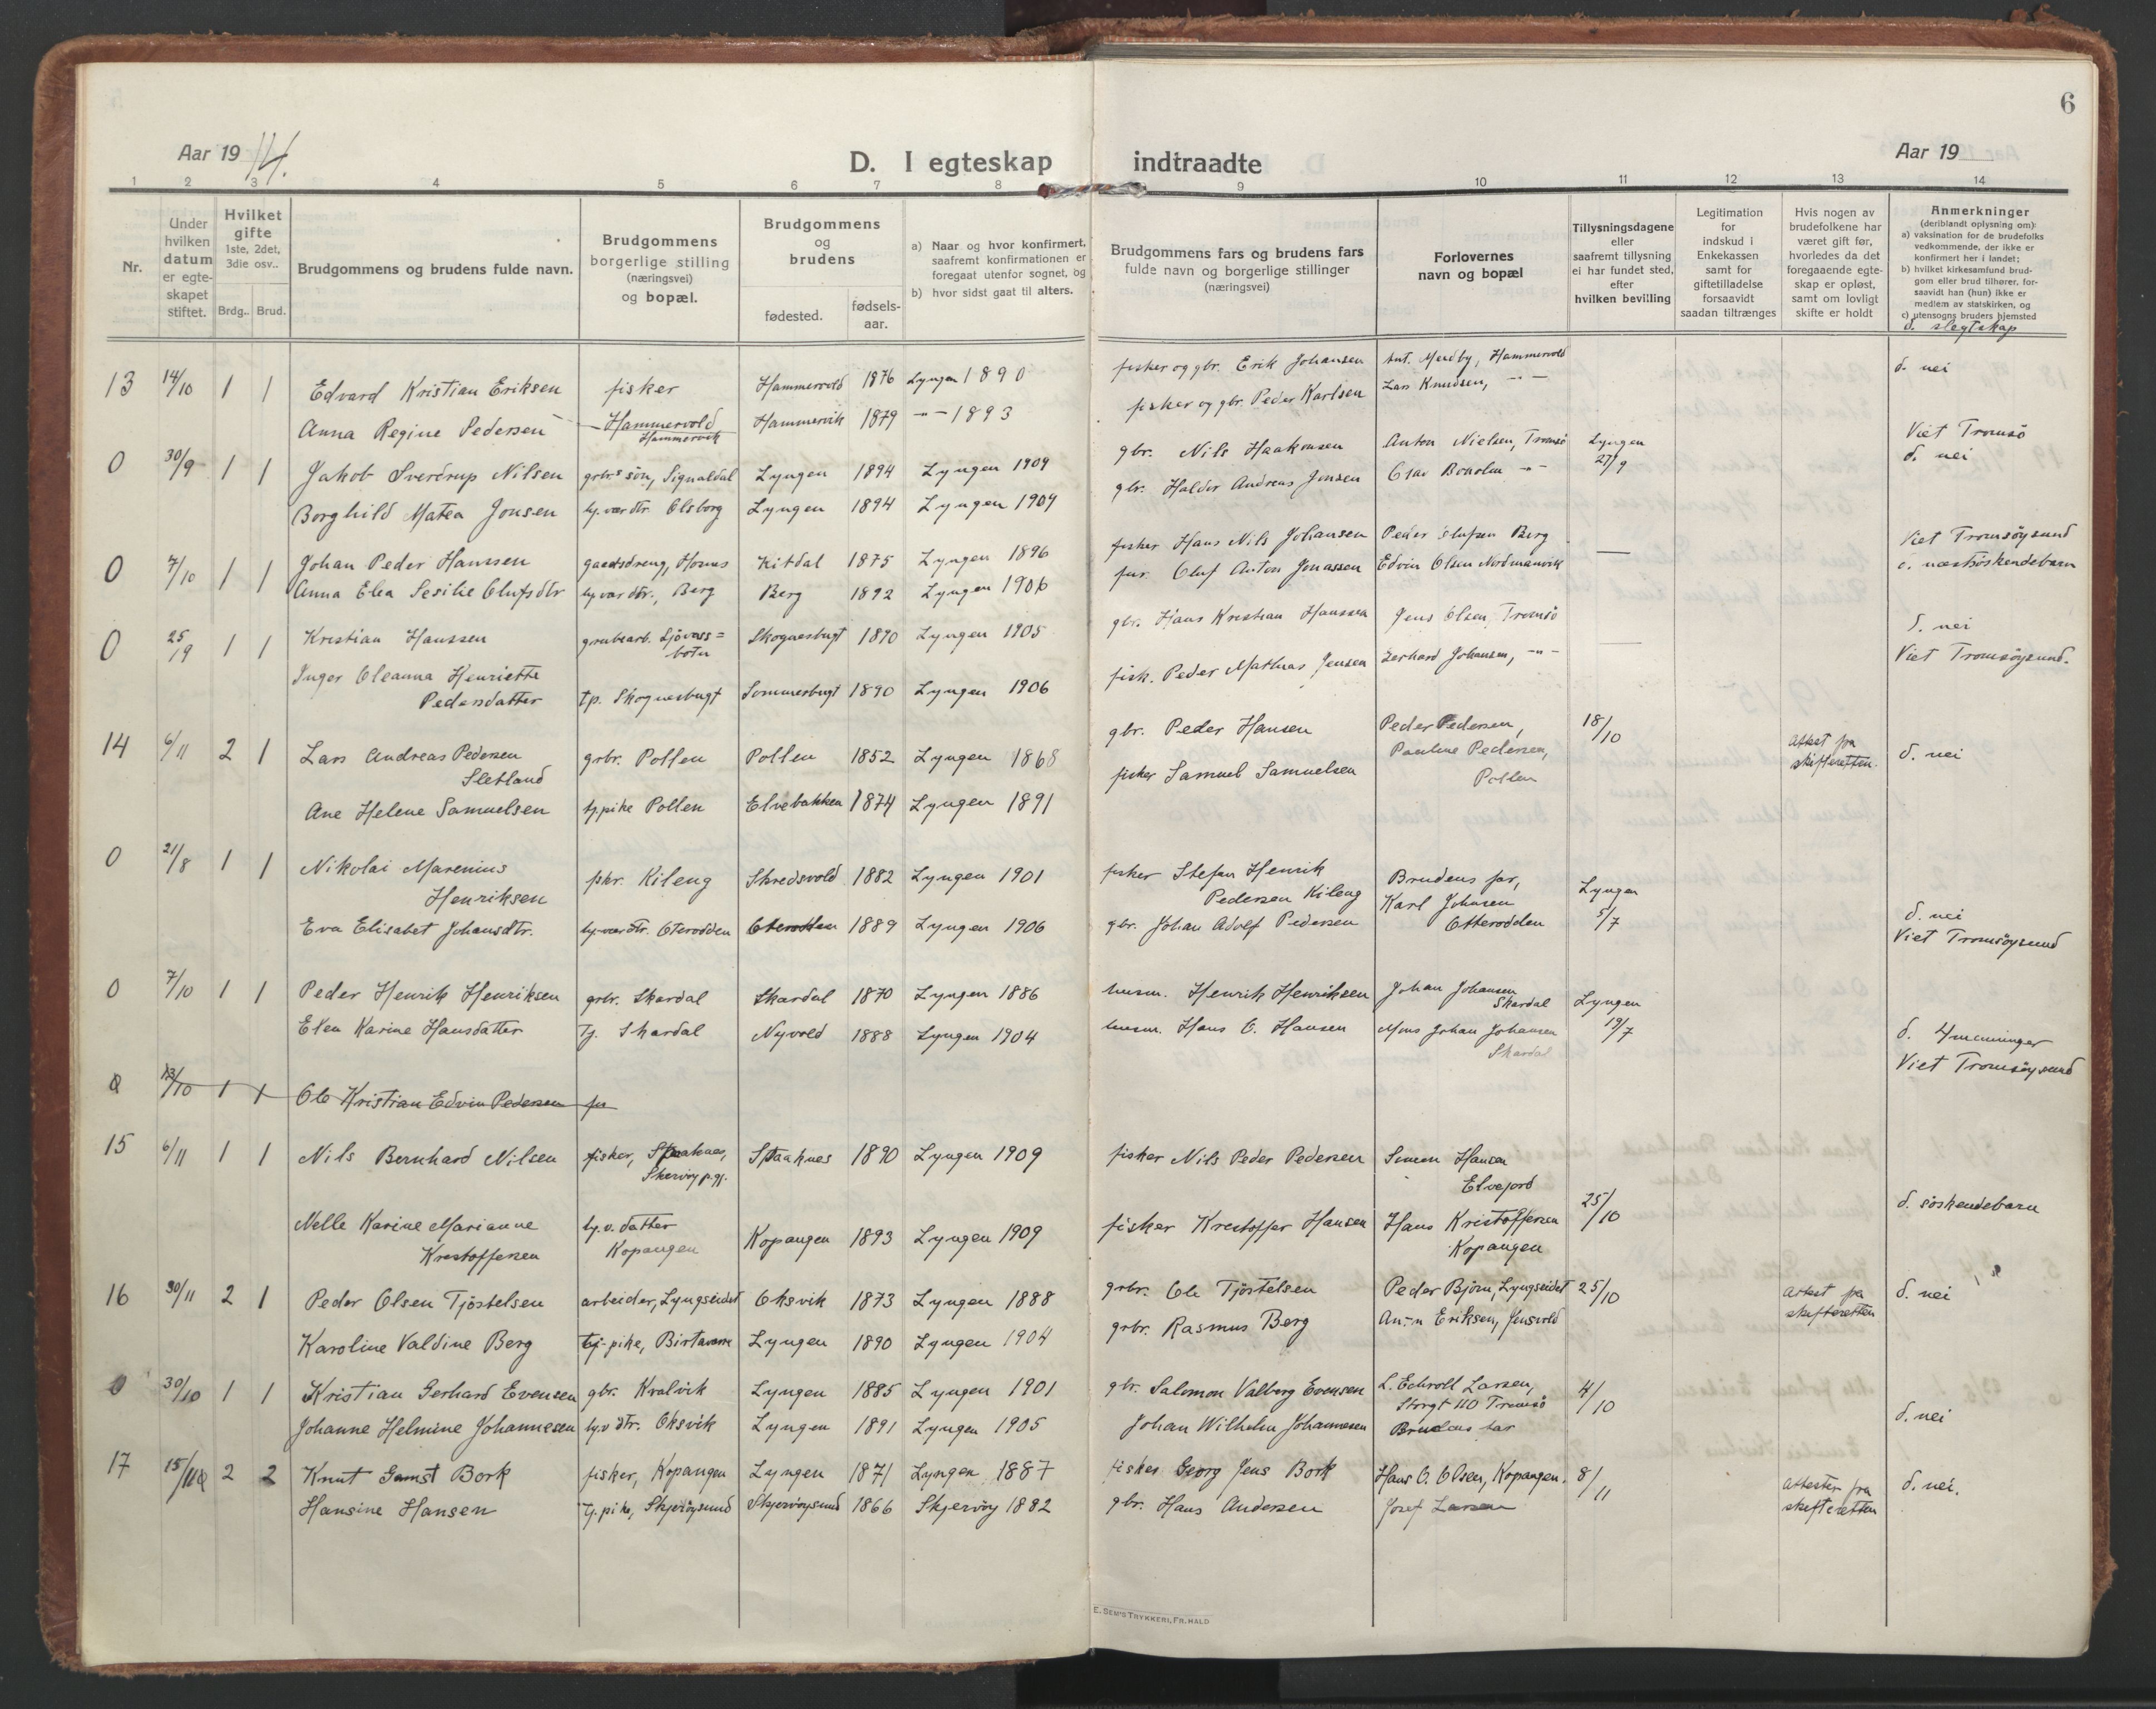 6
Aar 19 14.
D. I egteskap indtraadte
Aar 19
1 2 3 4 5 6 7 8 9 10 11 12 13 14
Nr.
Under hvilken datum er egteskapet stiftet.
Hvilket gifte 1ste, 2det, 3die osv..
Brdg.. Brud.
Brudgommens og brudens fulde navn.
Brudgommens borgerlige stilling (næringsvei) og bopæl.
Brudgommens og brudens
fødested. fødsels-aar.
a) Naar og hvor konfirmert, saafremt konfirmationen er foregaat utenfor sognet, og
b) hvor sidst gaat til alters.
Brudgommens fars og brudens fars fulde navn og borgerlige stillinger (næringsvei)
Forlovernes navn og bopæl
Tillysningsdagene eller saafremt tillysning ei har fundet sted, efter hvilken bevilling
Legitimation for indskud i Enkekassen samt for giftetilladelse forsaavidt saadan tiltrænges
Hvis nogen av brudefolkene har været gift før, hvorledes da det foregaaende egteskap er opløst, samt om lovligt skifte er holdt
Anmerkninger (deriblandt oplysning om):
a) vaksination for de brudefolks vedkommende, der ikke er konfirmert her i landet;
b) hvilket kirkesamfund brudgom eller brud tilhører, forsaavidt han (hun) ikke er medlem av statskirken, og
c) utensogns bruders hjemsted
d. slegtskap
13 14/10 1 1 Edvard Kristian Eriksen fisker Hammervold 1876 Lyngen 1890 fisker og gbr. Erik Johansen Ant. Merdby, Hammervold d. nei
Anna Regine Pedersen Hammervold Hammervik Hammervik 1879 -"- 1893 fisker og gbr. Peder Karlsen Lars Knudsen, -"-
0 30/9 1 1 Jakob Sverdrup Nilsen grbrs søn, Signaldal Lyngen 1894 Lyngen 1909 gbr. Nils Haakonsen Anton Nielsen, Tromsö Lyngen 27/9 Viet Tromsö d. nei
Borghild Matea Jonsen hj.vær dtr. Olsborg Lyngen 1894 Lyngen 1909 gbr. Haldor Andreas Jensen
0 7/10 1 1 Johan Peder Hanssen gaardsdreng, Kitdal 1875 Lyngen 1896 fisker Hans Nils Johansen Peder Berg — Viet Tromsöysund
Anna Elea Sesilie Olufsdtr hj vær dtr., Berg Berg 1892 Lyngen 1906 Oluf Anton Jonassen Edvin Olsen Nordmanvik d. næstsöskendebarn
0 25/19 1 1 Kristian Hanssen grubearb. Sjövass=botn Skognesbugt 1890 Lyngen 1905 gbr. Hans Kristian Hanssen Jens Olsen, Tromsö — d. nei
Inger Oleanna Henriette Pedersdatter tp. Skognesbugt Sommerbugt 1890 Lyngen 1906 fisk. Peder Mathias Jensen Gerhard Johansen, -"- Viet Tromsöysund.
14 6/11 2 1 Lars Andreas Pedersen Sletland grbr. Pollen Pollen 1852 Lyngen 1868 gbr. Peder Hansen Peder Pedersen, 18/10 Attest fra skifteretten. d. nei
Ane Helene Samuelsen tj.pike Pollen Elvebakken 1874 Lyngen 1891 fisker Samuel Samuelsen Pauline Pedersen, Pollen
0 21/8 1 1 Nikolai Marenius Henriksen fskr. Kileng Skredsvold 1882 Lyngen 1901 fisker Stefan Henrik Pedersen Kileng Brudens far, Lyngen 5/7
Eva Elisabet Johansdtr. hj.vær dtr. Oterodden Oterodden 1889 Lyngen 1906 gbr. Johan Adolf Pedersen Karl Johnsen Otterodden d. nei Viet Tromsöysund
0 7/10 1 1 Peder Henrik Henriksen grbr. Skardal Skardal 1870 Lyngen 1886 husm. Henrik Henriksen Johan Johansen Skardal Lyngen 19/7
Elen Karine Hansdatter Tj. Skardal Nyvold 1888 Lyngen 1904 husm. Hans O. Hansen Mons Johan Johansen Skardal d. 4menninger Viet Tromsöysund
0 13/10 1 1 Ole Kristian Edvin Pedersen
15 6/11 1 1 Nils Bernhard Nilsen fisker, Spaaknes, Skervöy p.gj. Spaaknes 1890 Lyngen 1909 fisker Nils Peder Pedersen Simon Hansen Elvejord 25/10
Nelle Karine Marianne Kristoffersen hj.v. datter Kopangen Kopangen 1893 Lyngen 1909 fisker Kristoffer Hansen Hans Kristoffersen Kopangen d. söskendebarn
16 30/11 2 1 Peder Olsen Tjöstelsen arbeider, Lyngseidet Oksvik 1873 Lyngen 1888 grbr. Ole Tjöstelsen Peder Björn, Lyngseidet 25/10 Attest fra skifteretten d. nei
Karoline Valdine Berg tj.-pike, Birtavarre Lyngen 1890 Lyngen 1904 grbr. Rasmus Berg Eriksen, Jensvold
0 30/10 1 1 Kristian Gerhard Evensen gbr. Kvalvik Lyngen 1885 Lyngen 1901 gbr. Salomon Valberg Evensen L. Echroll Larsen, Storgt 110 Tromsö 4/10
Johanne Helmine Johannesen hj.v dtr. Oksvik Lyngen 1891 Lyngen 1905 Johan Wilhelm Johannesen Brudens far d. nei
17 15/11 2 2 Knut Gamst Bork fisker, Kopangen Lyngen 1871 Lyngen 1887 fisker Georg Jens Bork Hans O. Olsen, Kopangen. 8/11 Attester fra skifteretten d. nei.
Hansine Hansen Tj.pike, Skjervöysund Skjervöysund 1866 Skjervöy 1882 gbr. Hans Andersen Josef Larsen
E. SEM'S TRYKKERI, FR. HALD